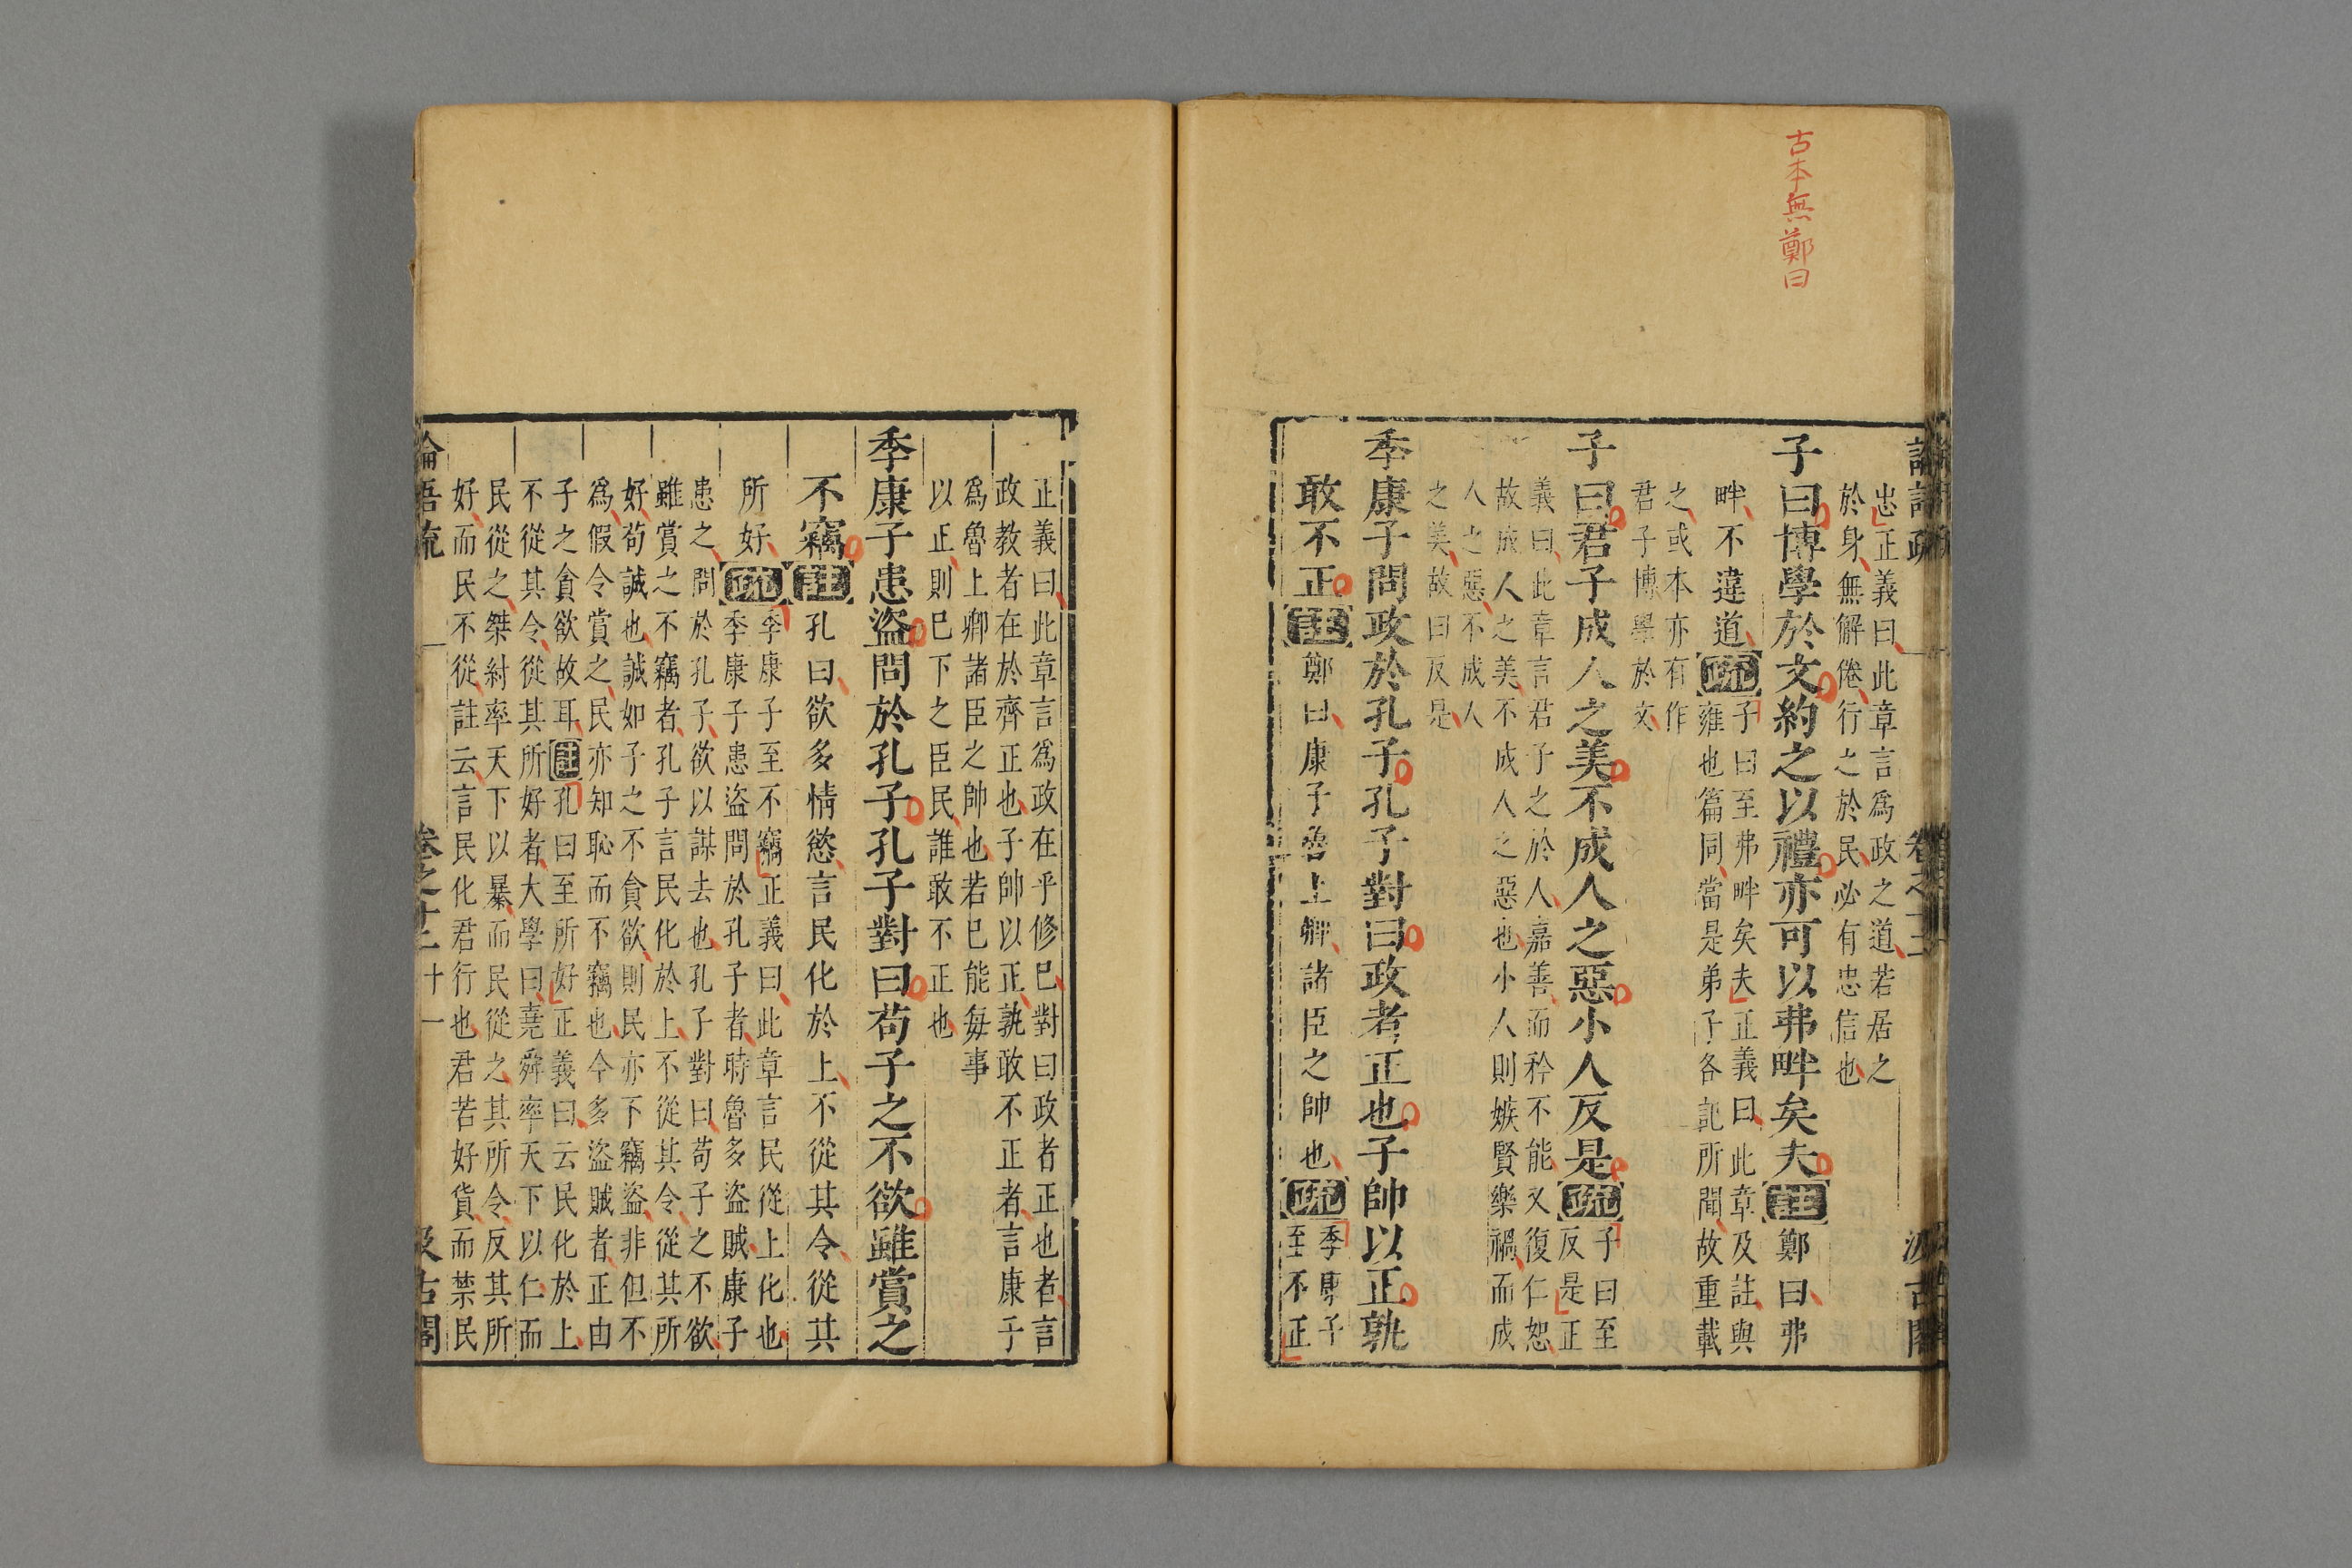 古本無鄭曰
忠正義曰此章言爲政之道若居之
於身無解倦行之於民必有忠信也
子曰博學於文約之以禮亦可以弗畔矣夫註鄭曰弗
畔不違道疏子曰至弗畔矣夫正義曰此章及註與
雍也篇同當是弟子各記所聞故重載
之或本亦有作
君子博學於文
子曰君子成人之美不成人之惡小人反是疏子曰至
反是正
義曰此章言君子之於人嘉善而矜不能又復仁恕
故成人之美不成人之惡也小人則嫉賢樂禍而成
人之惡不成人
之美故曰反是
季康子問政於孔子孔子對曰政者正也子帥以正孰
敢不正註鄭曰康子魯上卿諸臣之帥也疏季康子
至不正
正義曰此章言爲政在乎修已對曰政者正也者言
政教者在於齊正也子帥以正孰敢不正者言康子
爲魯上卿諸臣之帥也若已能每事
以正則已下之臣民誰敢不正也
季康子患盜問於孔子孔子對曰苟子之不欲雖賞之
不竊註孔曰欲多情慾言民化於上不從其令從其
所好疏季康子至不竊正義曰此章言民從上化也
季康子患盜問於孔子者時魯多盜賊康子
患之問於孔子欲以謀去也孔子對曰苟子之不欲
雖賞之不竊者孔子言民化於上不從其令從其所
好苟誠也誠如子之不貪欲則民亦不竊盜非但不
爲假令賞之民亦知恥而不竊也今多盜賊者正由
子之貪欲故耳註孔曰至所好正義曰云民化於上
不從其令從其所好者大學曰堯舜率天下以仁而
民從之桀紂率天下以暴而民從之其所令反其所
好而民不從註云言民化君行也君若好貨而禁民
論語疏 卷之十二 十一 汲古閣